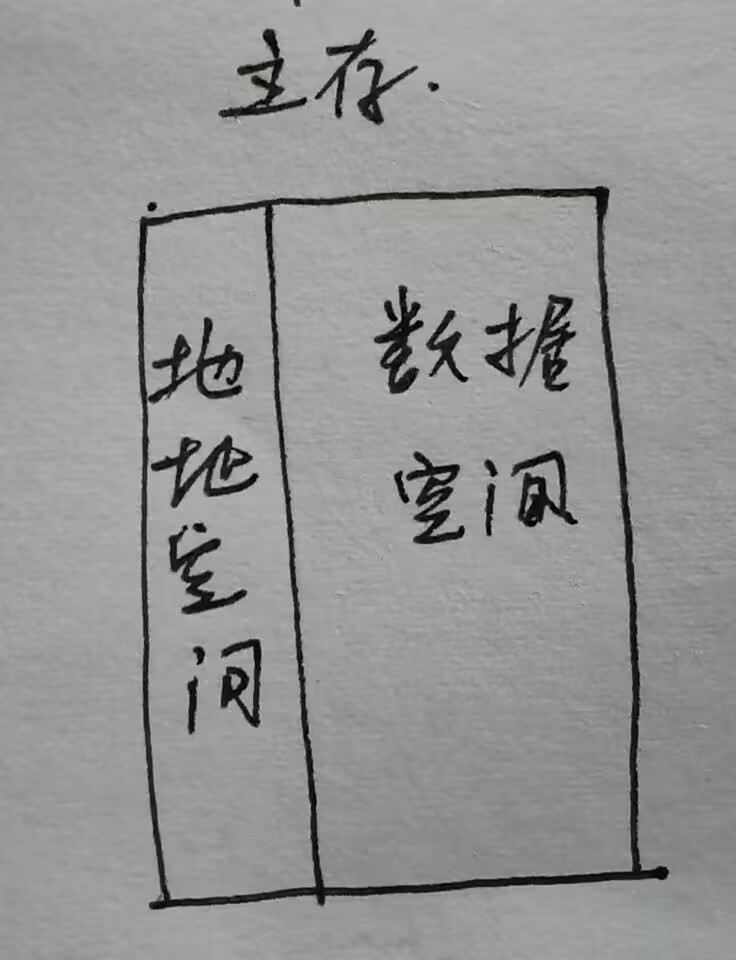 主存.
地地空间
数据
空间